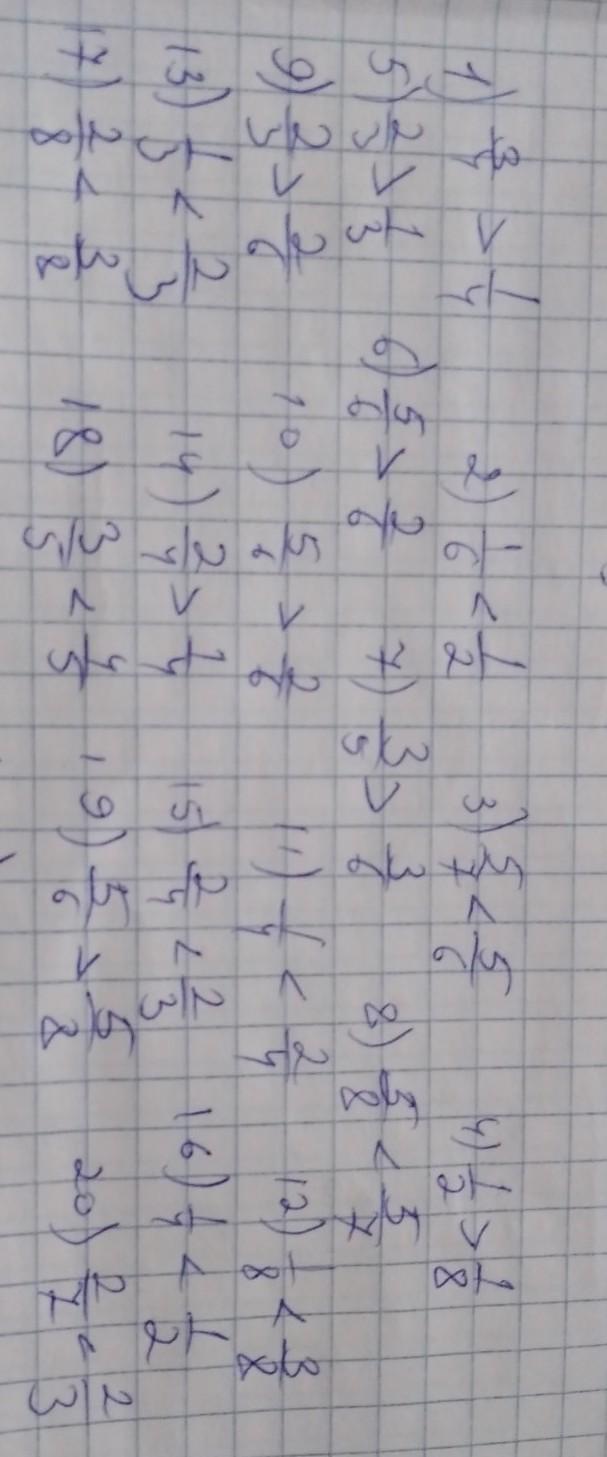 1) 3/4 > 1/4 2) 1/6 < 1/2 3) 5/7 < 5/6 4) 1/2 > 1/8
5) 2/3 > 1/3 6) 5/6 > 2/6 7) 3/5 > 3/6 8) 5/8 < 5/7
9) 2/3 > 2/6 10) 5/6 > 2/6 11) 1/4 < 2/4 12) 1/8 < 3/8
13) 1/3 < 2/3 14) 2/4 > 1/4 15) 2/4 < 2/3 16) 1/4 < 1/2
17) 2/8 < 3/8 18) 3/5 < 4/5 19) 5/6 > 5/8 20) 2/7 < 2/3